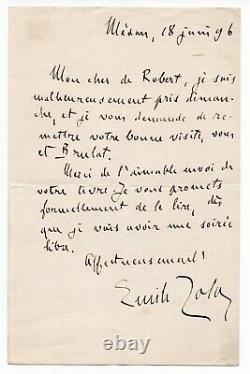 Médan, 18 juin 96
Mon cher de Robert, je suis
malheureusement pris diman-
che, et je vous demande de re-
mettre votre bonne visite, vous
et Brulat.
Merci de l'aimable envoi de
votre livre. Je vous promets
formellement de le lire, dès
que je vais avoir une soirée
libre.
Affectueusement
Emile Zola